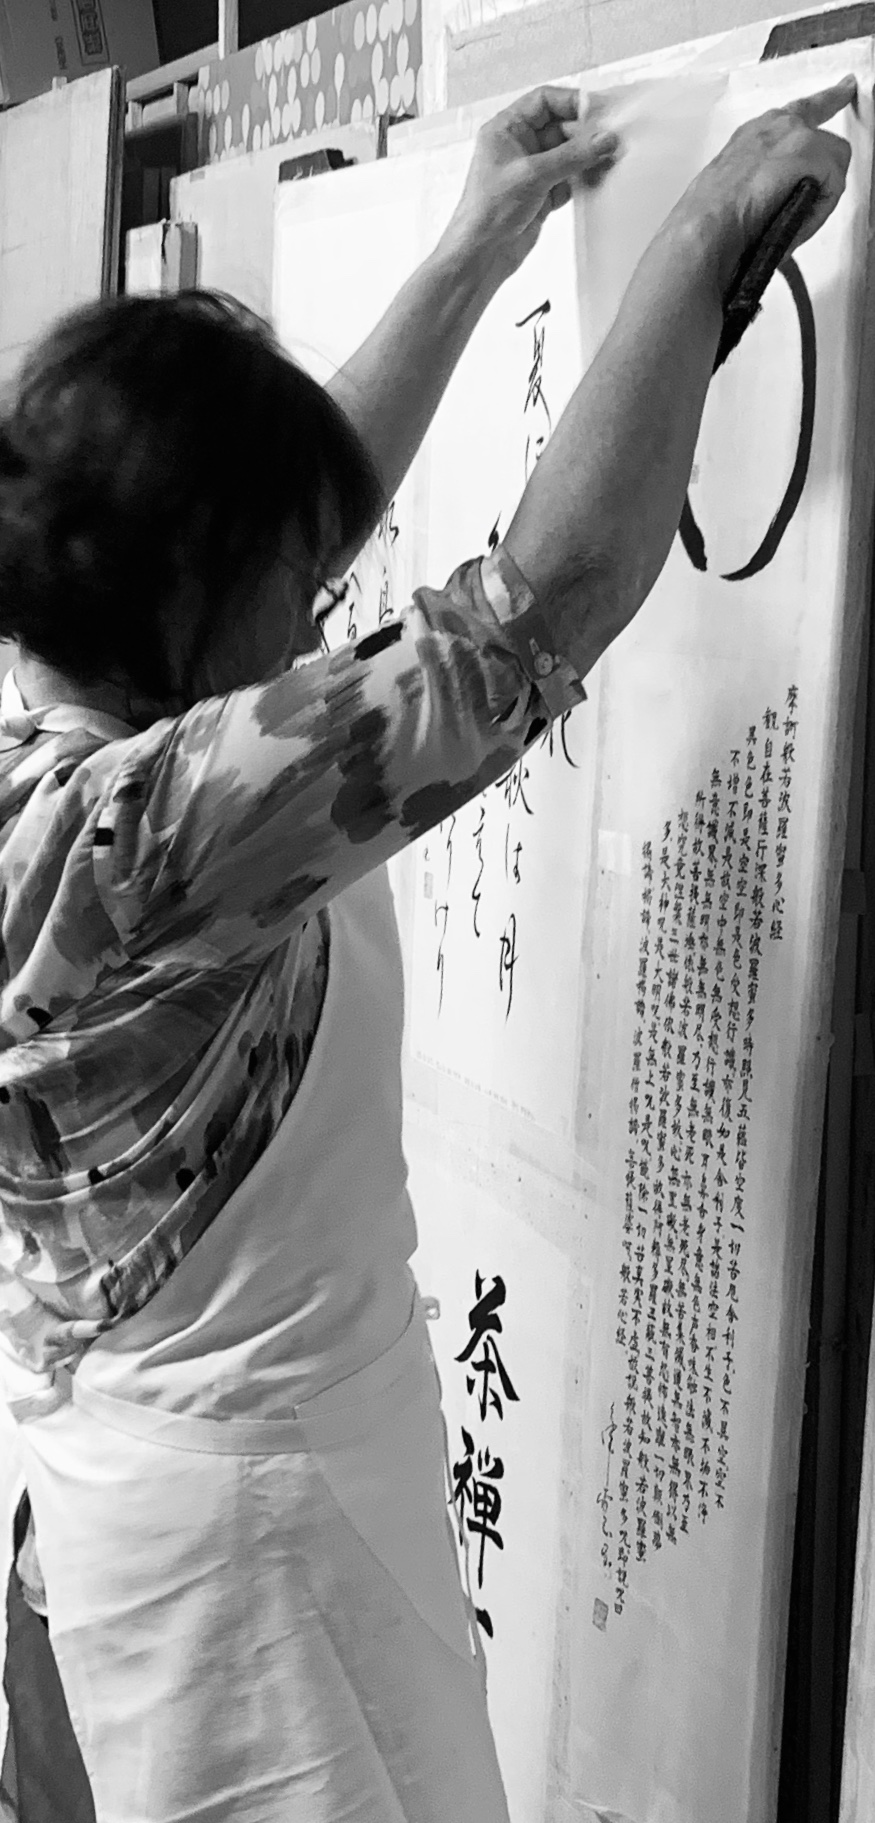 摩訶般若波羅蜜多心経
観自在菩薩行深般若波羅蜜多時照見五蘊皆空度一切苦厄舎利子色不異空空不
異色色即是空空即是色受想行識亦復如是舎利子是諸法空相不生不滅不垢不浄
不増不減是故空中無色無受想行識無眼耳鼻舌身意無色声香味触法無眼界乃至
無意識界無無明亦無無明尽乃至無老死亦無老死尽無苦集滅道無智亦無得以無
所得故菩提薩埵依般若波羅蜜多故心無罣礙無罣礙故無有恐怖遠離一切顛倒夢
想究竟涅槃三世諸佛依般若波羅蜜多故得阿耨多羅三藐三菩提故知般若波羅蜜
多是大神呪是大明呪是無上呪是呪能除一切苦真実不虚故説般若波羅蜜多呪即説呪曰
揭諦揭諦波羅揭諦波羅僧揭諦菩提薩婆訶般若心経
夏
秋は月
えて
りけり
茶禪一